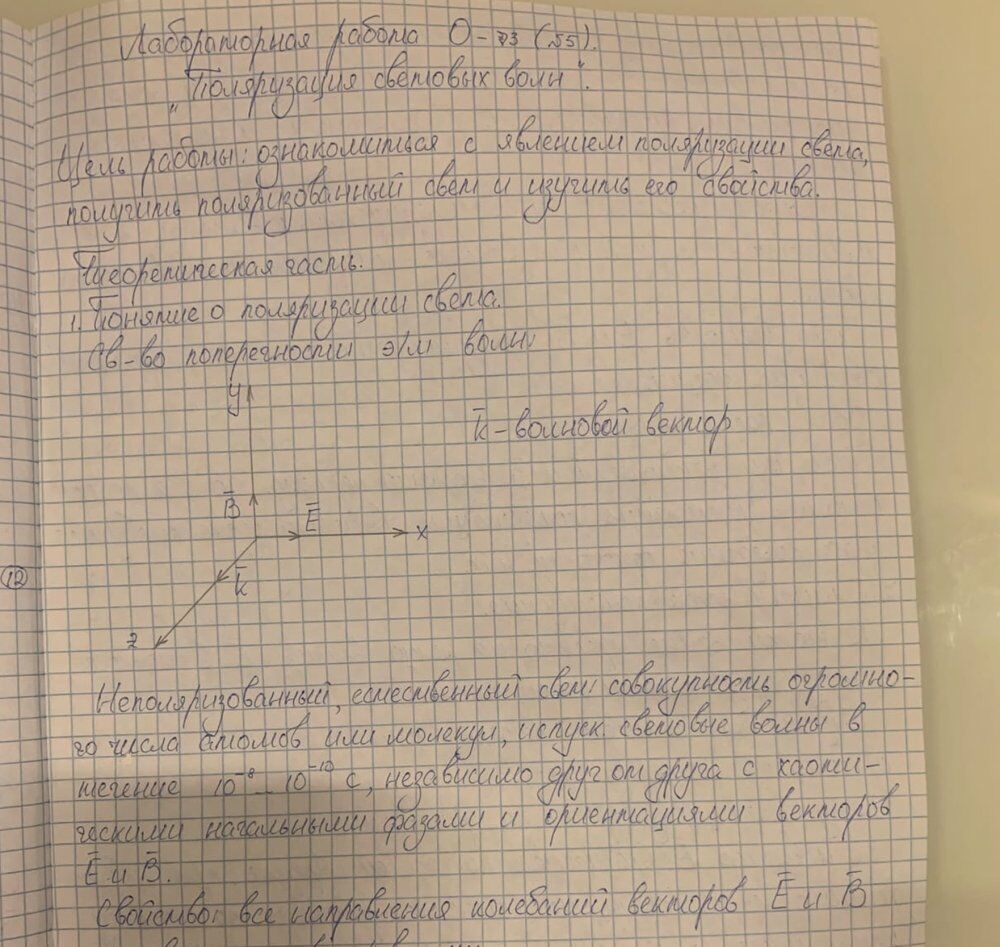 Лабораторная работа О-73 (55).
"Поляризация световых волн".
Цель работы: ознакомиться с явлением поляризации света,
получить поляризованный свет и изучить его свойства.
Теоретическая часть.
1. Понятие о поляризации света.
Св-во поперечности э/м волн.
y
k̄ - волновой вектор
B̄
Ē
x
12
k̄
z
Неполяризованный, естественный свет: совокупность огромно-
го числа атомов или молекул, испуск. световые волны в
течение 10⁻⁸ - 10⁻¹⁰ с, независимо друг от друга с хаоти-
ческими начальными фазами и ориентациями векторов
Ē и B̄.
Свойство: все направления колебаний векторов Ē и B̄